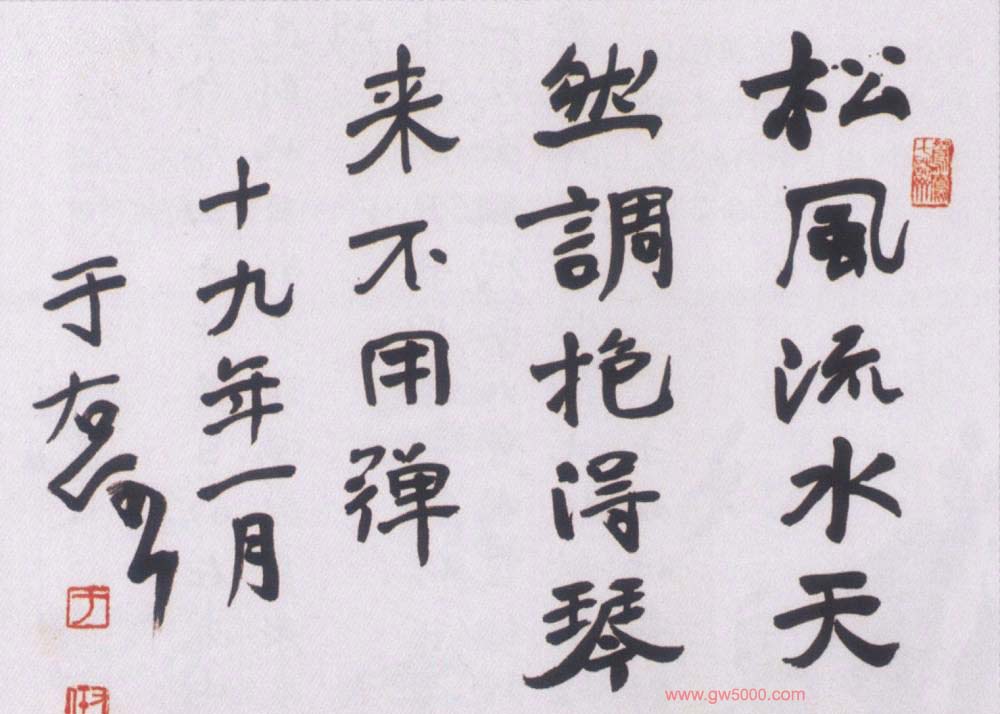 松風流水天
然調抱得琴
来不用彈
十九年一月
于右任
www.gw5000.com